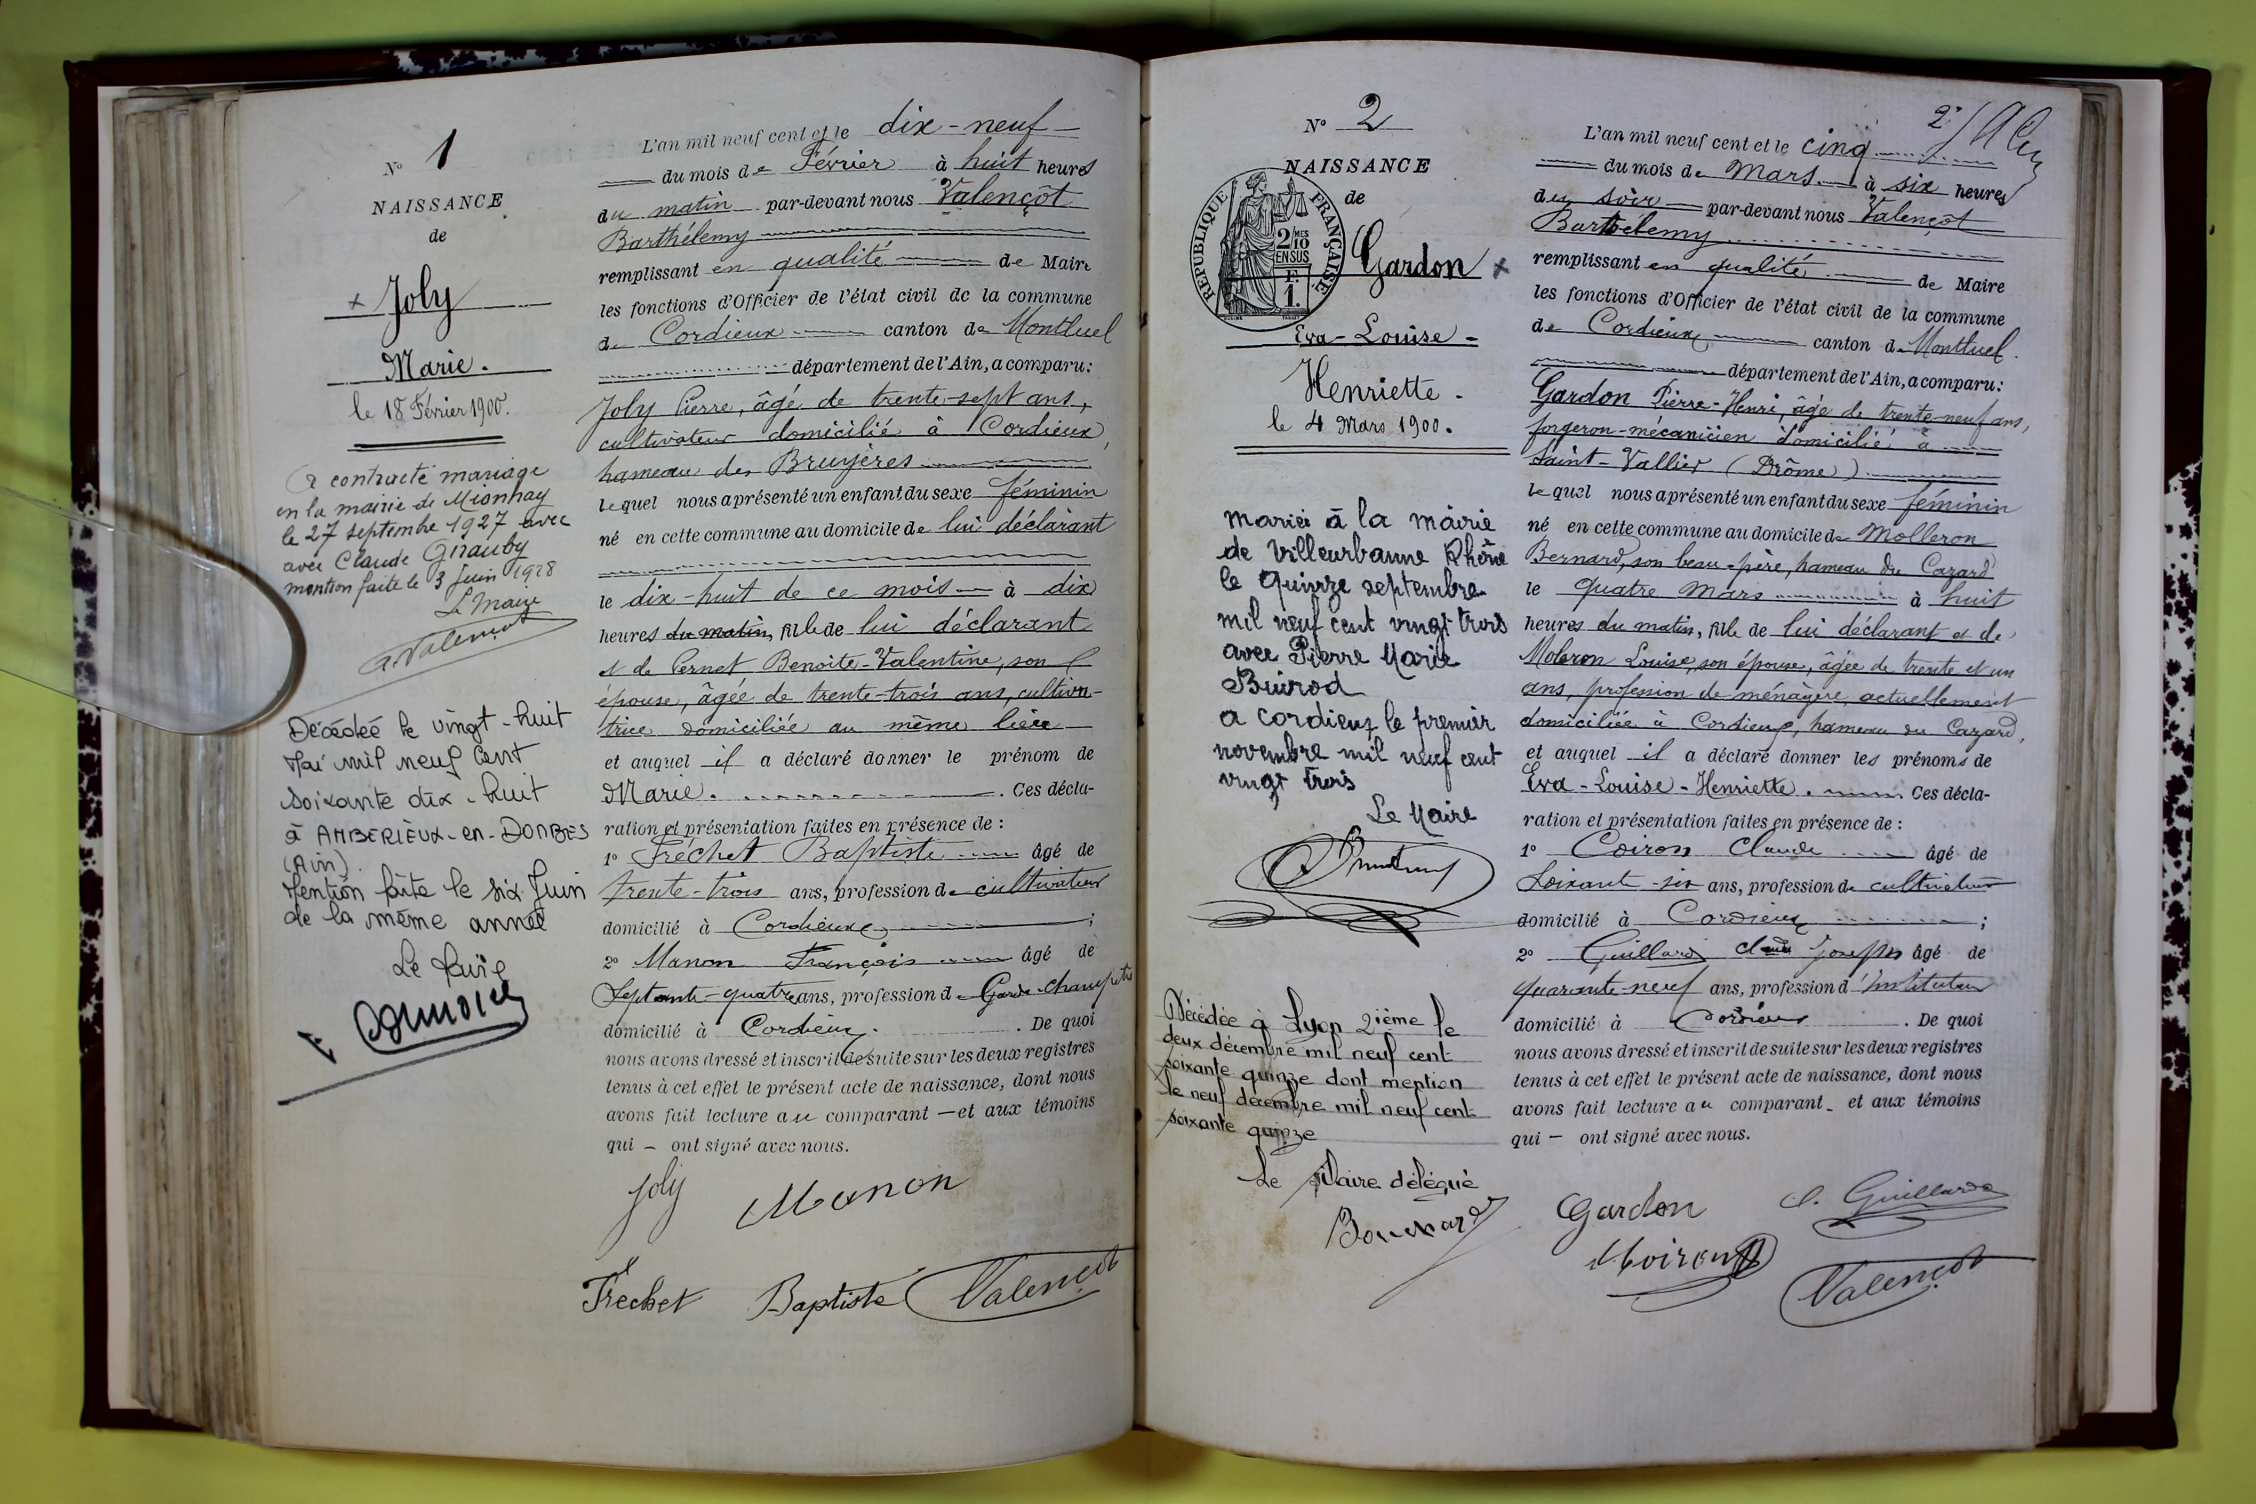 N° 1
NAISSANCE
de
× Joly
Marie.
le 18 Février 1900.
A contracté mariage
en la mairie de Mionnay
le 27 septembre 1927 avec
avec Claude Girauby
mention faite le 3 Juin 1928
Le Maire
A. Valençot
Décédée le vingt-huit
Mai mil neuf cent
soixante dix-huit
à AMBERIEUX-en-DOMBES
(Ain).
Mention faite le six Juin
de la même année
Le Maire
L'an mil neuf cent et le dix-neuf
du mois de Février à huit heures
du matin par-devant nous Valençôt
Barthélemy
remplissant en qualité de Maire
les fonctions d'Officier de l'état civil de la commune
de Cordieux canton de Montluel
département de l'Ain, a comparu:
Joly Pierre, âgé de trente-sept ans,
cultivateur domicilié à Cordieux,
hameau des Bruyères
lequel nous a présenté un enfant du sexe féminin
né en cette commune au domicile de lui déclarant
le dix-huit de ce mois à dix
heures du matin, fille de lui déclarant
et de Pernet Benoite-Valentine, son
épouse, âgée de trente-trois ans, cultiva-
trice domiciliée au même lieu
et auquel il a déclaré donner le prénom de
Marie. Ces décla-
ration et présentation faites en présence de :
1° Fréchet Baptiste âgé de
trente-trois ans, profession de cultivateur
domicilié à Cordieux ;
2° Manon François âgé de
septante-quatre ans, profession de Garde-champêtre
domicilié à Cordieux. De quoi
nous avons dressé et inscrit de suite sur les deux registres
tenus à cet effet le présent acte de naissance, dont nous
avons fait lecture au comparant — et aux témoins
qui — ont signé avec nous.
Joly Manon
Fréchet Baptiste Valençot
N° 2
NAISSANCE
de
RÉPUBLIQUE FRANÇAISE
2/10 MES
EN SUS
F.
1.
Gardon ×
Eva-Louise-
Henriette.
le 4 Mars 1900.
Mariée à la mairie
de Villeurbanne Rhône
le quinze septembre
mil neuf cent vingt trois
avec Pierre Marie
Buirod
a cordieux le premier
novembre mil neuf cent
vingt trois
Le Maire
Décédée à Lyon 2ième le
deux décembre mil neuf cent
soixante quinze dont mention
le neuf décembre mil neuf cent
soixante quinze
Le Maire délégué
Bonnard
2°
L'an mil neuf cent et le cinq
du mois de Mars à six heures
du soir par-devant nous Valençot
Barthélemy
remplissant en qualité de Maire
les fonctions d'Officier de l'état civil de la commune
de Cordieux canton de Montluel.
département de l'Ain, a comparu:
Gardon Pierre-Henri, âgé de trente-neuf ans,
forgeron-mécanicien domicilié à
Saint-Vallier (Drôme)
lequel nous a présenté un enfant du sexe féminin
né en cette commune au domicile de Molleron
Bernard, son beau-père, hameau du Cazard
le quatre Mars à huit
heures du matin, fille de lui déclarant et de
Moleron Louise, son épouse, âgée de trente et un
ans, profession de ménagère, actuellement
domiciliée à Cordieux, hameau du Cazard,
et auquel il a déclaré donner les prénoms de
Eva-Louise-Henriette. Ces décla-
ration et présentation faites en présence de :
1° Coiron Claude âgé de
soixante-six ans, profession de cultivateur
domicilié à Cordieux ;
2° Guillard Claude Joseph âgé de
quarante-neuf ans, profession d'instituteur
domicilié à Cordieux. De quoi
nous avons dressé et inscrit de suite sur les deux registres
tenus à cet effet le présent acte de naissance, dont nous
avons fait lecture au comparant - et aux témoins
qui — ont signé avec nous.
Gardon C. Guillard
Valençot